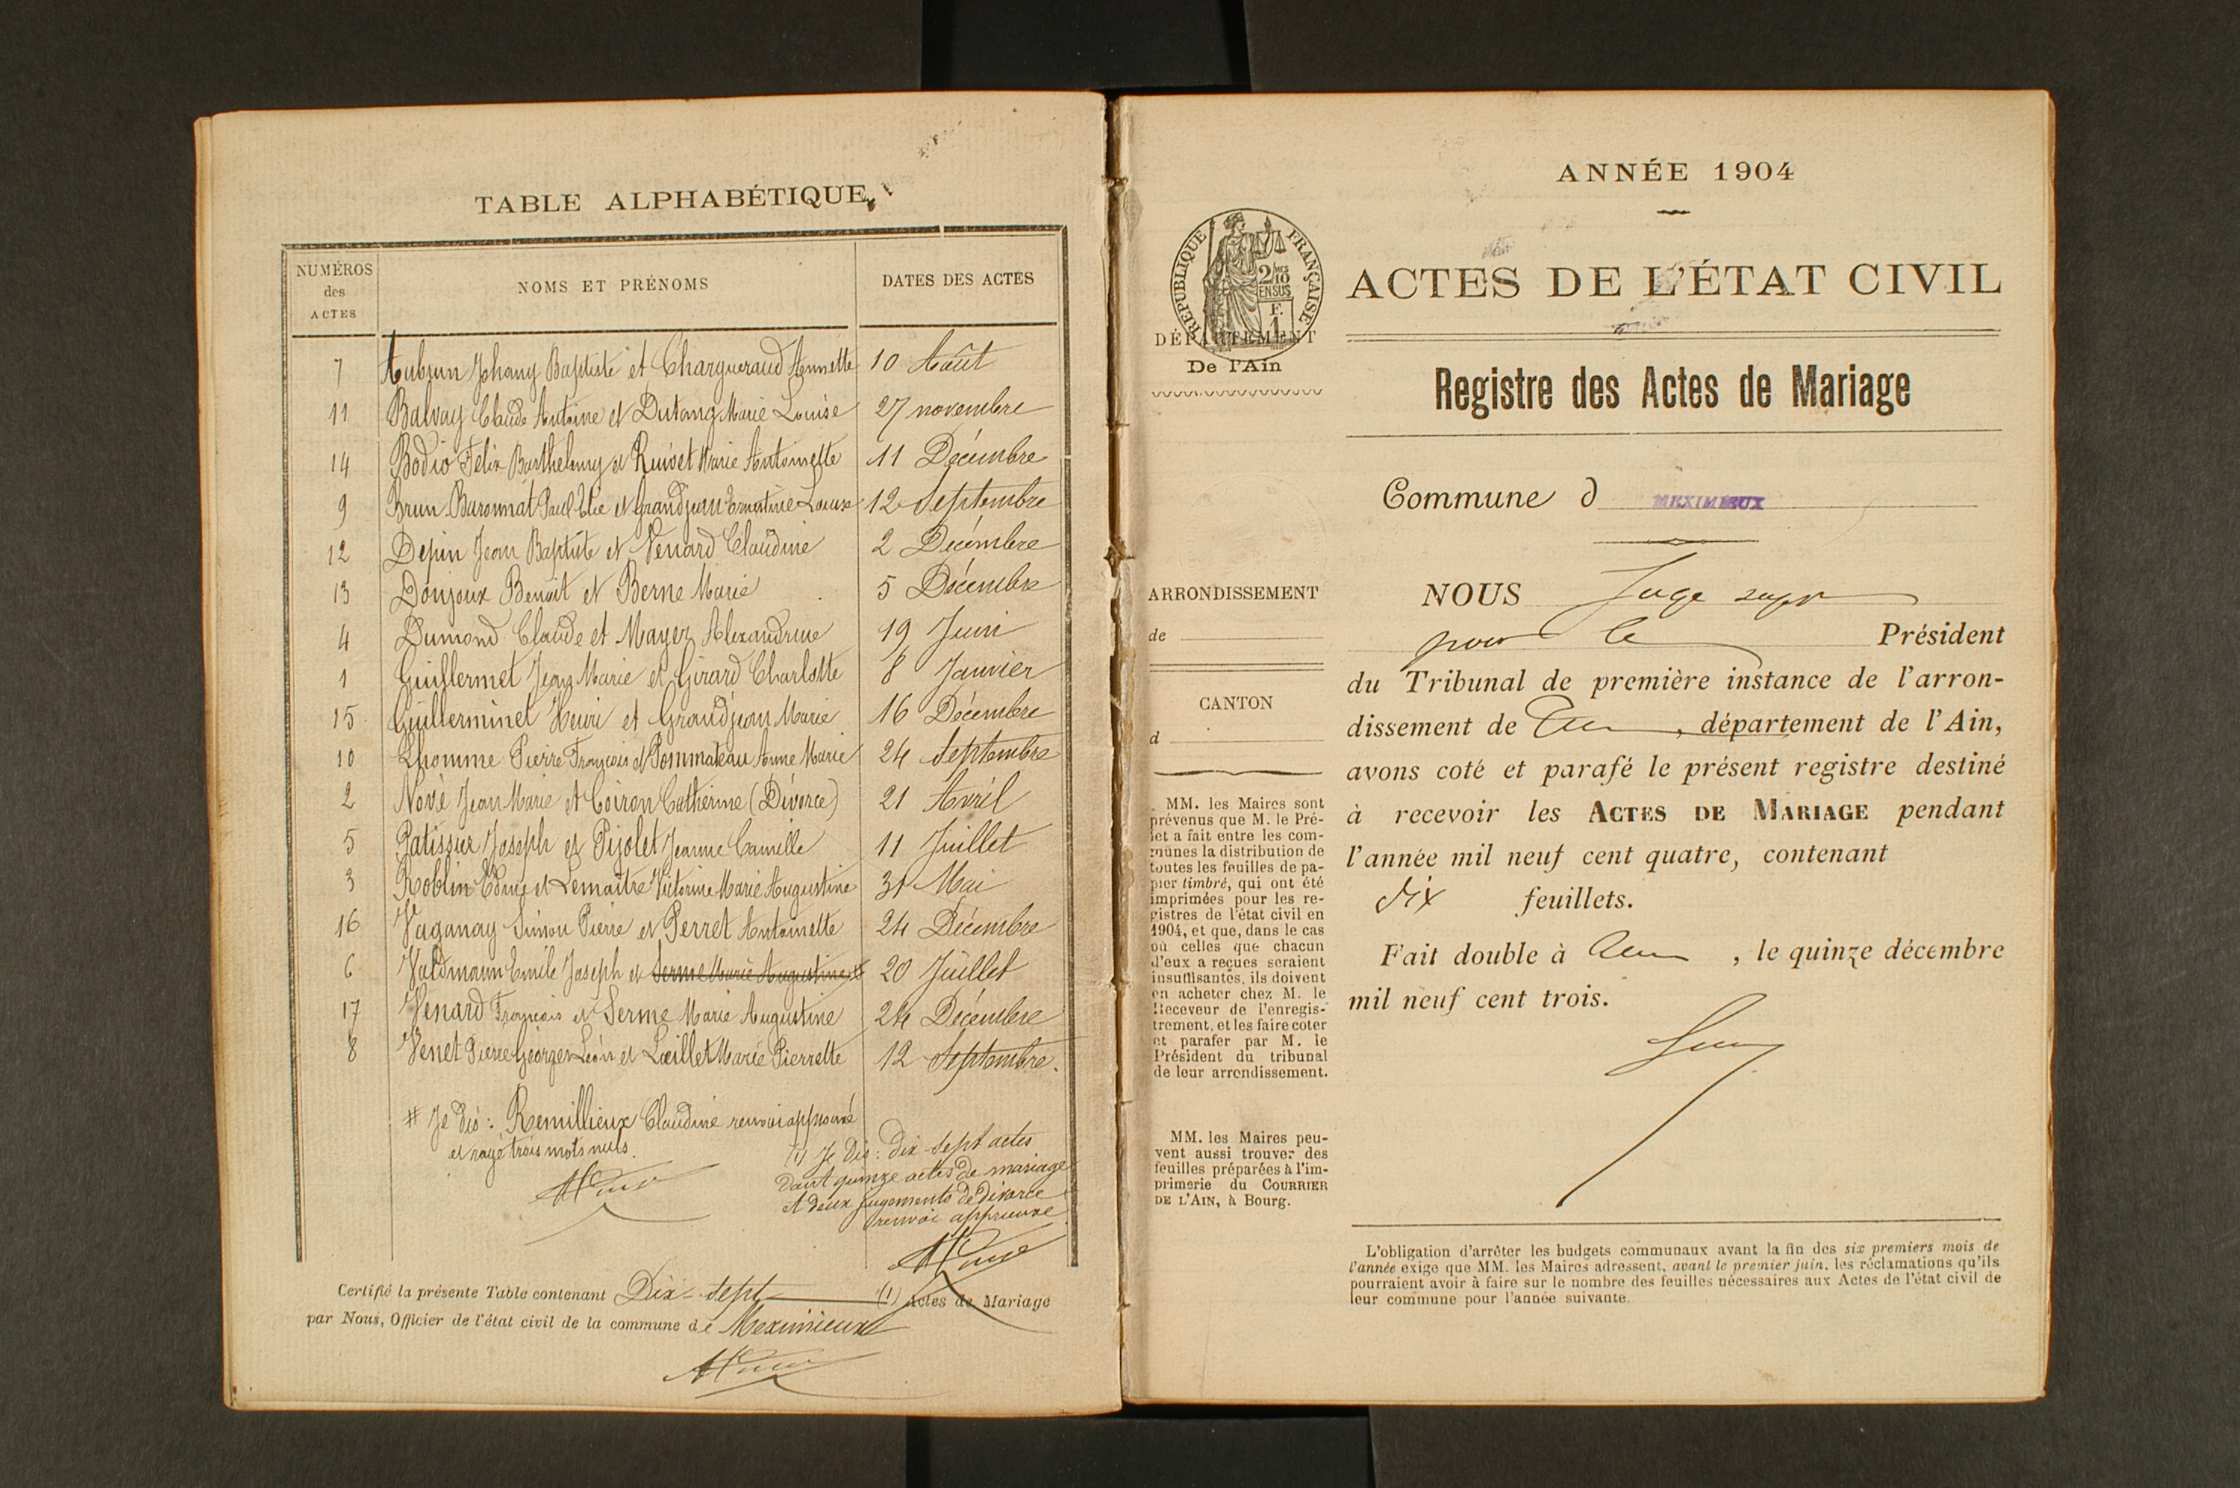 TABLE ALPHABÉTIQUE
NUMÉROS des ACTES NOMS ET PRÉNOMS DATES DES ACTES
7 Aubrun Johany Baptiste et Chargueraud Annette 10 Août
11 Balvay Claude Antoine et Dutang Marie Louise 27 novembre
14 Bodio Félix Barthelemy et Ruivet Marie Antoinette 11 Décembre
9 Brun Baronnat Paul Elie et Grandjean Ernestine Louise 12 Septembre
12 Depin Jean Baptiste et Venard Claudine 2 Décembre
13 Donjoux Benoit et Berne Marie 5 Décembre
4 Dumond Claude et Mayer Alexandrine 19 Juin
1 Guillermet Jean Marie et Girard Charlotte 8 Janvier
15 Guillerminet Henri et Grandjean Marie 16 Décembre
10 Lhomme Pierre François et Pommateau Anne Marie 24 Septembre
2 Nové Jean Marie et Coiron Catherine (Divorce) 21 Avril
5 Patissier Joseph et Pijolet Jeanne Camille 11 Juillet
3 Roblin Edme et Lemaitre Victorine Marie Augustine 31 Mai
16 Vaganay Simon Pierre et Perret Antoinette 24 Décembre
6 Valdmann Emile Joseph et Serme Marie Augustine # 20 Juillet
17 Venard François et Serme Marie Augustine 24 Décembre
8 Venet Pierre Georges Léon et Lœillet Marie Pierrette 12 Septembre.
# Je dis : Remillieux Claudine renvoi approuvé
et rayé trois mots nuls.
(1) Je dis : dix-sept actes
dont quinze actes de mariage
et deux jugements de divorce
renvoi approuvé
Certifié la présente Table contenant Dix-sept (1) Actes de Mariage
par Nous, Officier de l'état civil de la commune de Meximieux
ANNÉE 1904
RÉPUBLIQUE FRANÇAISE
2/10 EN SUS
F. 1
ACTES DE L'ÉTAT CIVIL
DÉPARTEMENT
De l'Ain
Registre des Actes de Mariage
Commune d MEXIMIEUX
ARRONDISSEMENT
de
CANTON
d
MM. les Maires sont
prévenus que M. le Pré-
fet a fait entre les com-
munes la distribution de
toutes les feuilles de pa-
pier timbré, qui ont été
imprimées pour les re-
gistres de l'état civil en
1904, et que, dans le cas
où celles que chacun
d'eux a reçues seraient
insuffisantes, ils doivent
en acheter chez M. le
Receveur de l'enregis-
trement, et les faire coter
et parafer par M. le
Président du tribunal
de leur arrondissement.
MM. les Maires peu-
vent aussi trouver des
feuilles préparées à l'im-
primerie du COURRIER
DE L'AIN, à Bourg.
NOUS Juge supp
pour le Président
du Tribunal de première instance de l'arron-
dissement de , département de l'Ain,
avons coté et parafé le présent registre destiné
à recevoir les ACTES DE MARIAGE pendant
l'année mil neuf cent quatre, contenant
dix feuillets.
Fait double à , le quinze décembre
mil neuf cent trois.
L'obligation d'arrêter les budgets communaux avant la fin des six premiers mois de
l'année exige que MM. les Maires adressent, avant le premier juin, les réclamations qu'ils
pourraient avoir à faire sur le nombre des feuilles nécessaires aux Actes de l'état civil de
leur commune pour l'année suivante.